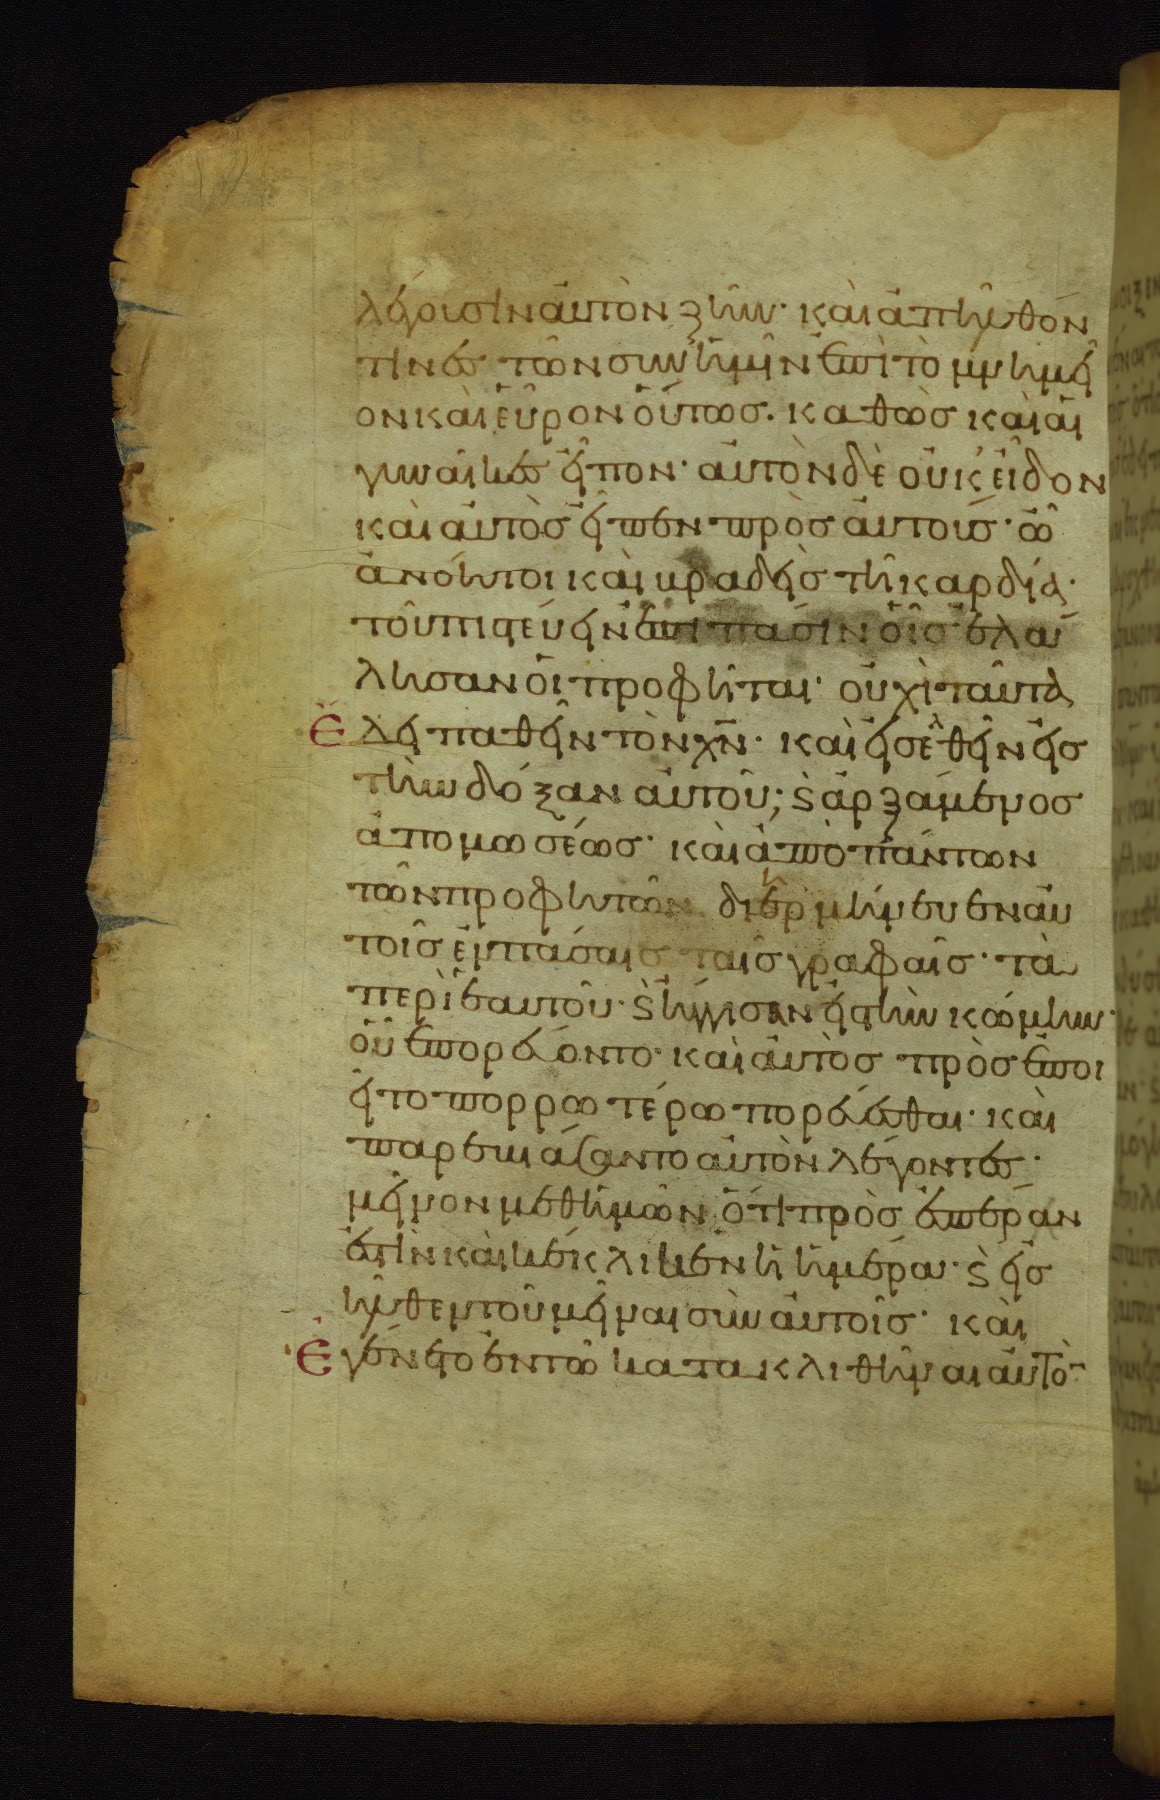 λέγουσιν αὐτὸν ζῆν· καὶ ἀπῆλθόν
τινὲς τῶν σὺν ἡμῖν ἐπὶ τὸ μνημεῖ
ον καὶ εὗρον οὕτως· καθὼς καὶ αἱ
γυναῖκες εἶπον· αὐτὸν δὲ οὐκ εἶδον
καὶ αὐτὸς εἶπεν πρὸς αὐτούς· ὦ
ἀνόητοι καὶ βραδεῖς τῇ καρδίᾳ·
τοῦ πιστεύειν ἐπὶ πᾶσιν οἷς ἐλά
λησαν οἱ προφῆται· οὐχὶ ταῦτα
ἔδει παθεῖν τὸν χν· καὶ εἰσελθεῖν εἰς
τὴν δόξαν αὐτοῦ; ϗ ἀρξάμενος
ἀπο μωσέως· καὶ ἀπὸ πάντων
τῶν προφητῶν διηρμήνευεν αὐ
τοῖς ἐν πάσαις ταῖς γραφαῖς· τὰ
περὶ ἑαυτοῦ· ϗ ἤγγισαν εἰς τὴν κώμην·
οὗ ἐπορεύοντο· καὶ αὐτὸς προσεποι
εῖτο πορρωτέρω πορεύεσθαι· καὶ
παρεβιάσαντο αὐτὸν λέγοντες·
μεῖνον μεθ ἡμῶν ὅτι πρὸς ἑσπέραν
ἐστὶν καὶ κέκλικεν ἡ ἡμέρα· ϗ εἰσ
ῆλθεν τοῦ μεῖναι σὺν αὐτοῖς· καὶ
ἐγένετο ἐν τῶ κατακλιθῆναι αὐτὸ